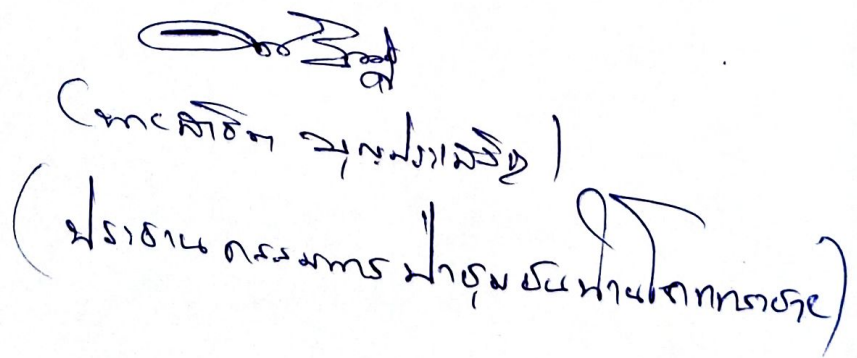 (นายสาธิต บุญประเสริฐ)
(ประธานกรรมการป่าชุมชนบ้านโคกทรายาย)